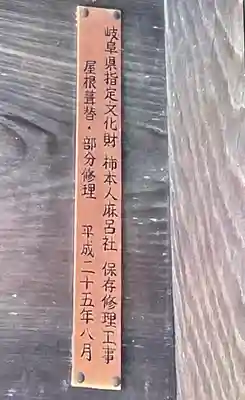 岐阜県指定文化財 柿本人麻呂社 保存修理工事
屋根葺替・部分修理 平成二十五年八月